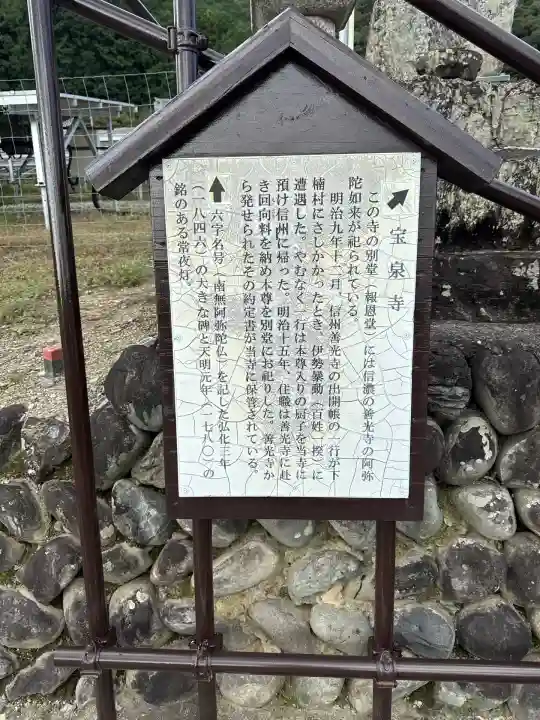 ↗ 宝泉寺
この寺の別堂（報恩堂）には信濃の善光寺の阿弥
陀如来が祀られている。
明治九年十二月、信州善光寺の出開帳の一行が下
楠村にさしかかったとき、伊勢暴動（百姓一揆）に
遭遇した。やむなく一行は本尊入りの厨子を当寺に
預け信州に帰った。明治十五年、住職は善光寺に赴
き回向料を納め本尊を別堂にお祀りした。善光寺か
ら発せられたその約定書が当寺に保管されている。
↑ 六字名号（南無阿弥陀仏）を記した弘化三年
（一八四六）の大きな碑と天明元年（一七八〇）の
銘のある常夜灯。